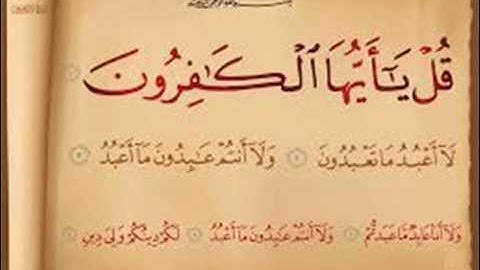 قُلۡ يَـٰٓأَيُّهَا ٱلۡكَـٰفِرُونَ ١
لَآ أَعۡبُدُ مَا تَعۡبُدُونَ ٢ وَلَآ أَنتُمۡ عَـٰبِدُونَ مَآ أَعۡبُدُ ٣
وَلَآ أَنَا۠ عَابِدٞ مَّا عَبَدتُّمۡ ٤ وَلَآ أَنتُمۡ عَـٰبِدُونَ مَآ أَعۡبُدُ ٥ لَكُمۡ دِينُكُمۡ وَلِيَ دِينِ ٦